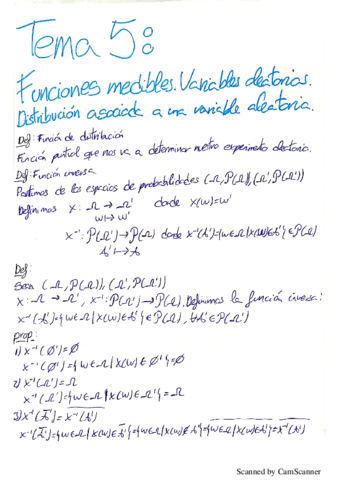 Tema 5:
Funciones medibles. Variables aleatorias.
Distribución asociada a una variable aleatoria.
Def: Función de distribución
Función puntual que nos va a determinar nuestro experimento aleatorio.
Def: Función inversa
Partimos de los espacios de probabilidades (Ω, P(Ω)), (Ω', P(Ω'))
Definimos X: Ω → Ω' donde X(w)=w'
w ↦ w'
X⁻¹: P(Ω') → P(Ω) donde X⁻¹(A')={w∈Ω | X(w)∈A'} ∈ P(Ω)
A' ↦ A
Def:
Sean (Ω, P(Ω)), (Ω', P(Ω'))
X: Ω → Ω', X⁻¹: P(Ω') → P(Ω). Definimos la función inversa:
X⁻¹(A')={w∈Ω | X(w)∈A'} ∈ P(Ω), ∀A'∈P(Ω')
prop:
1) X⁻¹(Ø')=Ø
X⁻¹(Ø')={w∈Ω | X(w)∈Ø'}=Ø
2) X⁻¹(Ω')=Ω
X⁻¹(Ω')={w∈Ω | X(w)∈Ω'}=Ω
3) X⁻¹(A̅')= X̅⁻̅¹̅(̅A̅'̅)̅
X⁻¹(A̅')={w∈Ω | X(w)∈A̅'}={w∈Ω | X(w)∉A'}={w∈Ω | X(w)∈A'}=X⁻¹(A')
Scanned by CamScanner